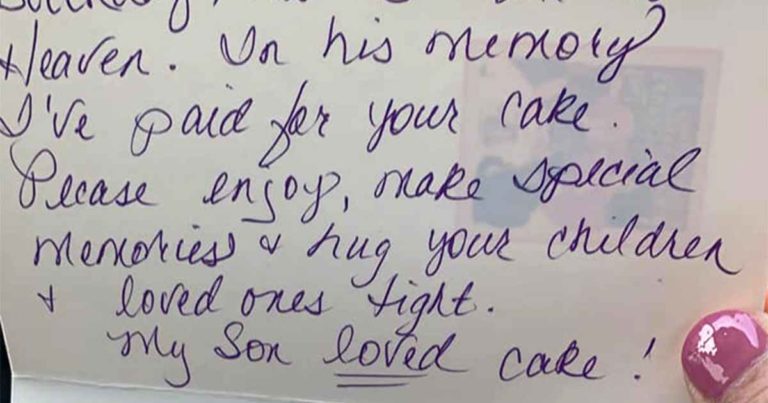 Heaven. In his memory
I've paid for your cake.
Please enjoy, make special
memories & hug your children
& loved ones tight.
My Son loved cake!